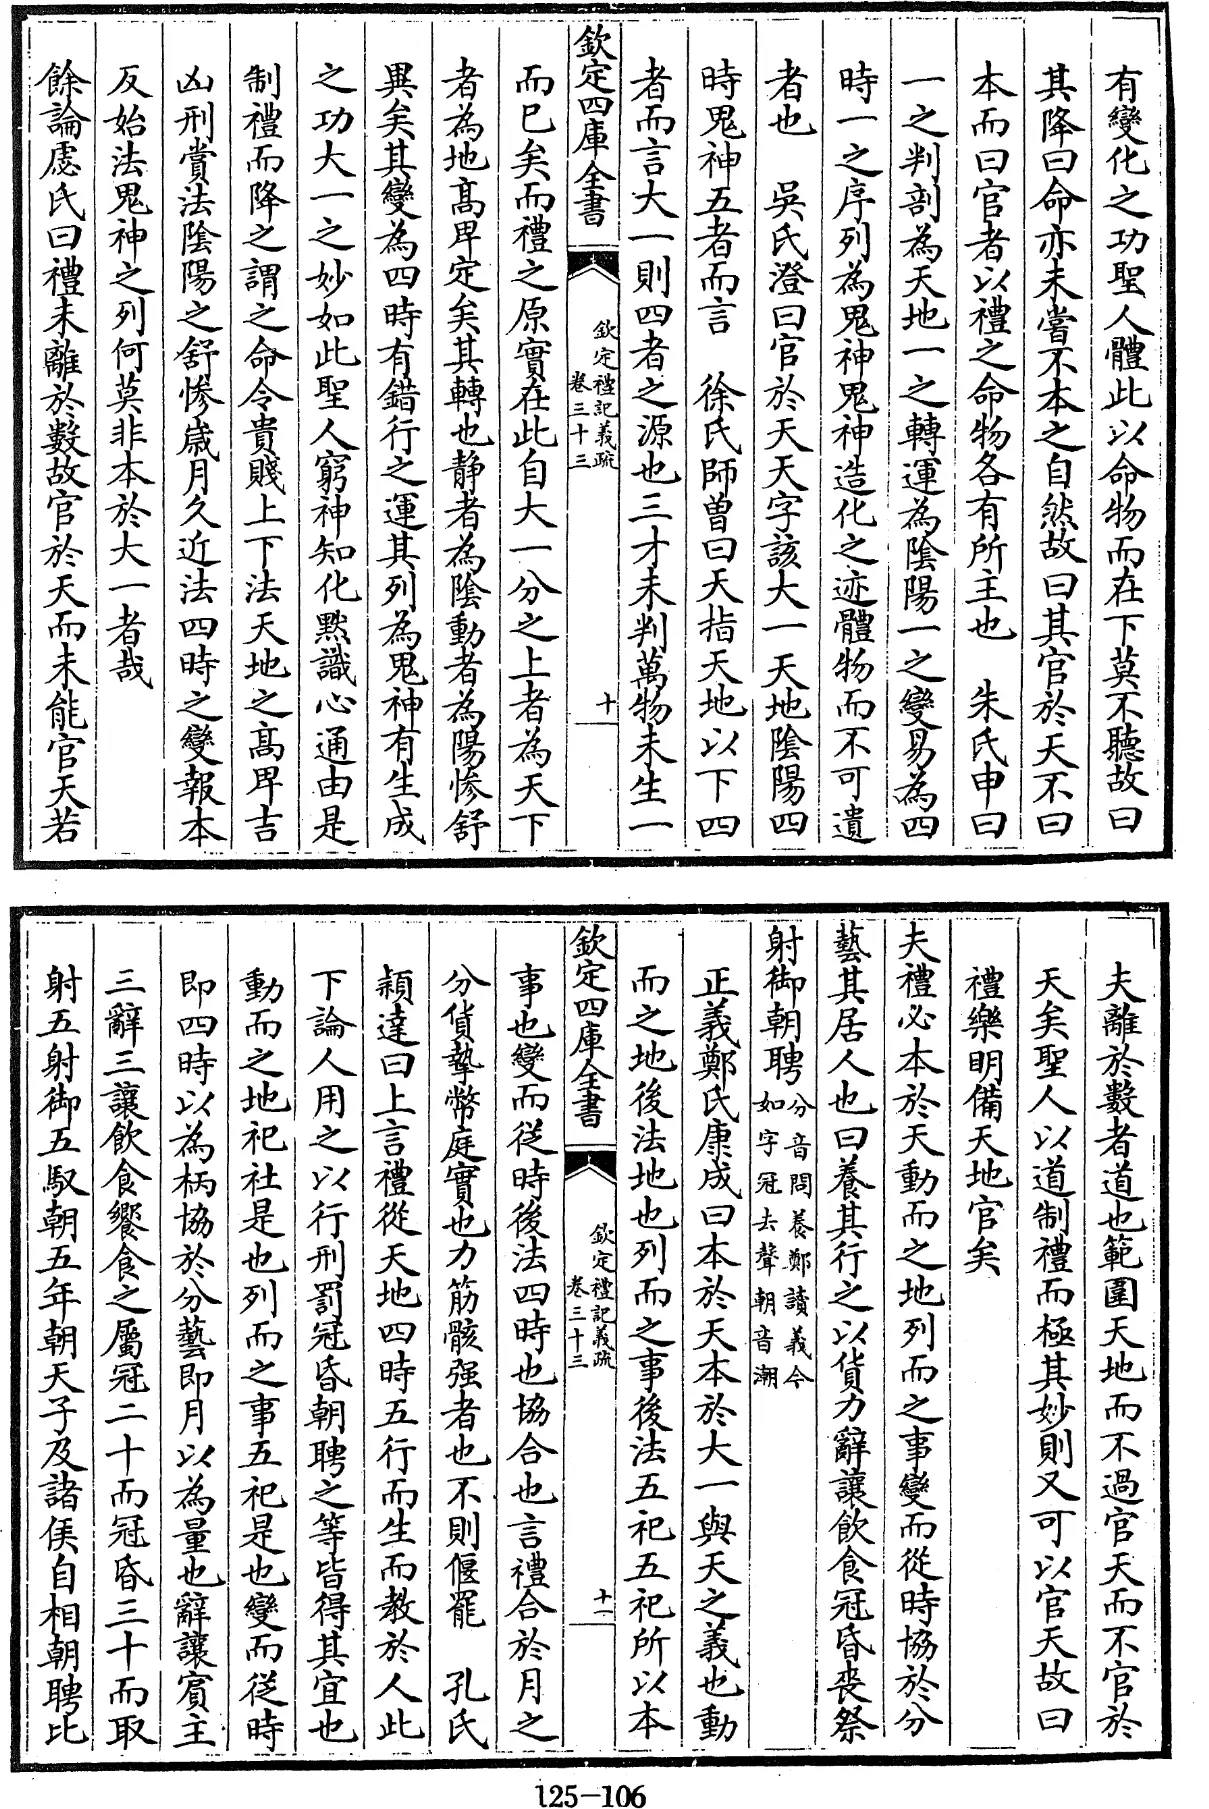 有變化之功聖人體此以命物而在下莫不聽故曰
其降曰命亦未嘗不本之自然故曰其官於天不曰
本而曰官者以禮之命物各有所主也　朱氏申曰
一之判剖為天地一之轉運為陰陽一之變易為四
時一之序列為鬼神鬼神造化之迹體物而不可遺
者也　吳氏澄曰官於天天字該大一天地陰陽四
時鬼神五者而言　徐氏師曽曰天指天地以下四
者而言大一則四者之源也三才未判萬物未生一
欽定四庫全書　欽定禮記義疏　卷三十三　十
而已矣而禮之原實在此自大一分之上者為天下
者為地髙卑定矣其轉也静者為陰動者為陽慘舒
異矣其變為四時有錯行之運其列為鬼神有生成
之功大一之妙如此聖人窮神知化黙識心通由是
制禮而降之謂之命令貴賤上下法天地之髙卑吉
凶刑賞法陰陽之舒慘嵗月久近法四時之變報本
反始法鬼神之列何莫非本於大一者哉
餘論慮氏曰禮未離於數故官於天而未能官天若
夫離於數者道也範圍天地而不過官天而不官於
天矣聖人以道制禮而極其妙則又可以官天故曰
禮樂明備天地官矣
夫禮必本於天動而之地列而之事變而從時協於分
藝其居人也曰養其行之以貨力辭讓飲食冠昏喪祭
射御朝聘分音問養鄭讀義今如字冠去聲朝音潮
正義鄭氏康成曰本於天本於大一與天之義也動
而之地後法地也列而之事後法五祀五祀所以本
欽定四庫全書　欽定禮記義疏　卷三十三　十一
事也變而從時後法四時也協合也言禮合於月之
分貨摯幣庭實也力筋骸强者也不則偃罷　孔氏
穎達曰上言禮從天地四時五行而生而教於人此
下論人用之以行刑罰冠昏朝聘之等皆得其宜也
動而之地祀社是也列而之事五祀是也變而從時
即四時以為柄協於分藝即月以為量也辭讓賔主
三辭三讓飲食饗食之屬冠二十而冠昏三十而取
射五射御五馭朝五年朝天子及諸侯自相朝聘比
125-106